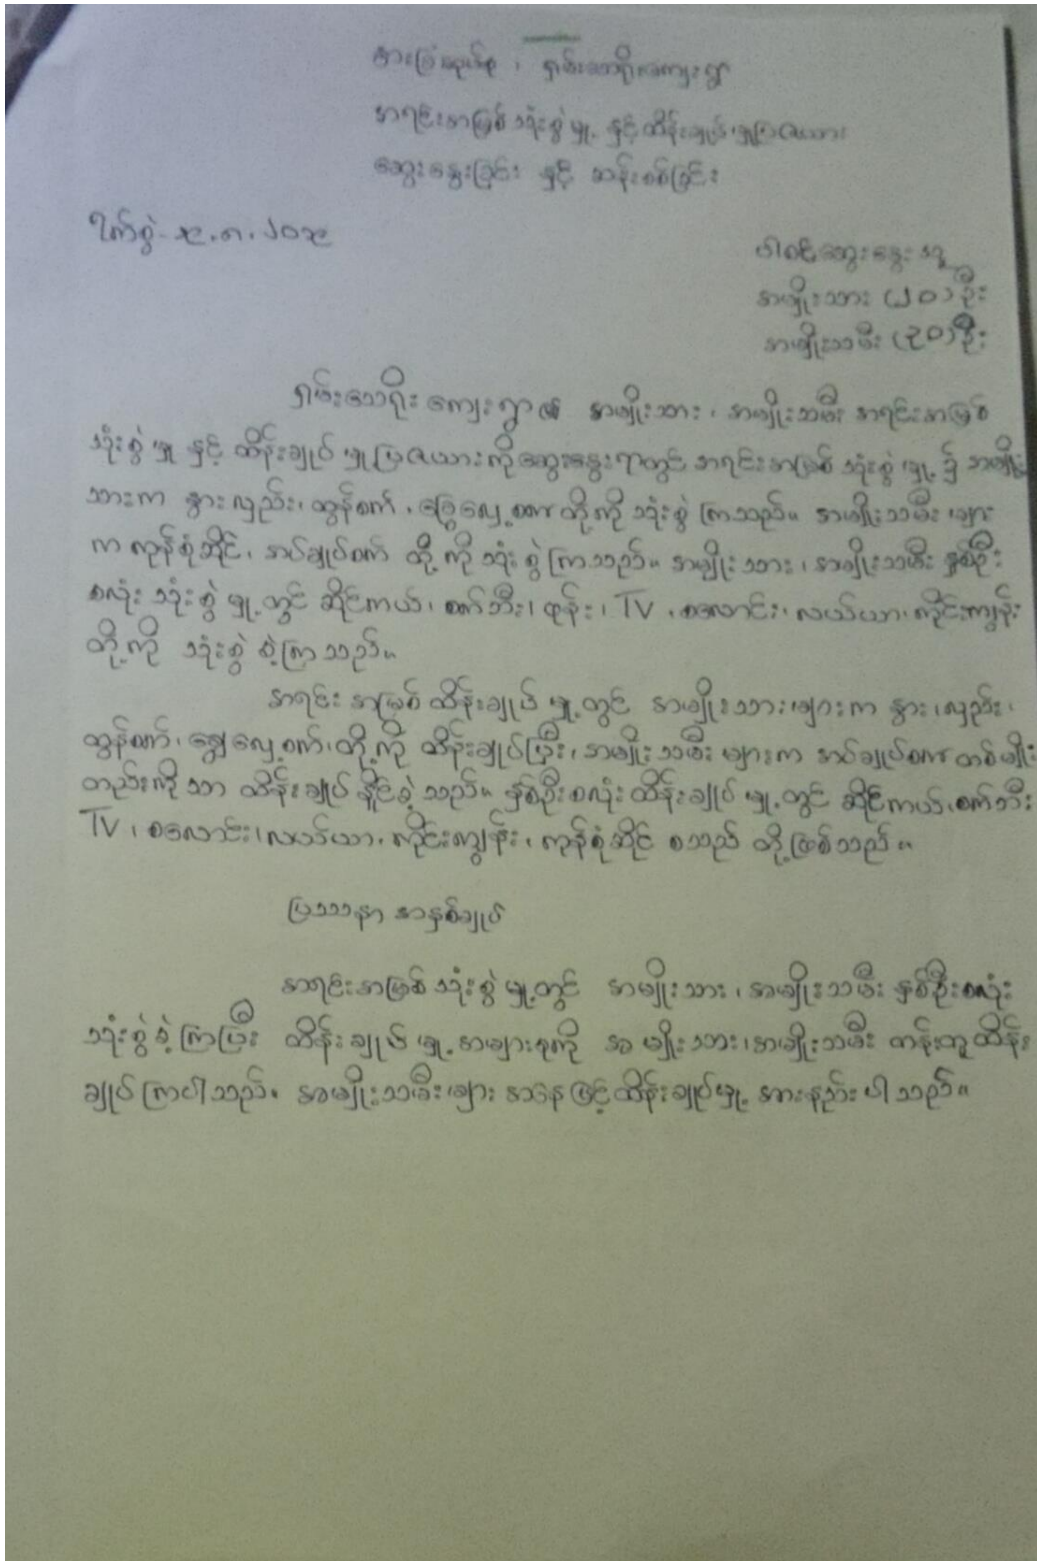 ရှမ်းသေရိုးကျေးရွာ
အရင်းအမြစ်သုံးစွဲမှု့ နှင့်ထိန်းချုပ်မှုပြဇယား
ဆွေးနွေးခြင်း နှင့် ဆန်းစစ်ခြင်း
ရက်စွဲ-
ပါဝင်ဆွေးနွေးသူ
အမျိုးသား (၂၀)ဦး
အမျိုးသမီး (၃၀)ဦး
ရှမ်းသေရိုး ကျေးရွာ၏ အမျိုးသား၊ အမျိုးသမီး အရင်းအမြစ်
သုံးစွဲမှု နှင့် ထိန်းချုပ်မှုပြဇယားကိုဆွေးနွေးရာတွင် အရင်းအမြစ်သုံးစွဲမှု့၌ အမျိုး
သားက နွားလှည်း၊ ထွန်စက်၊ ခြွေလှေ့စက် တို့ကိုသုံးစွဲကြသည်။ အမျိုးသမီးများ
က ကုန်စုံဆိုင်၊ အပ်ချုပ်စက် တို့ကိုသုံးစွဲကြသည်။ အမျိုးသား၊ အမျိုးသမီး နှစ်ဦး
စလုံး သုံးစွဲမှု့တွင် ဆိုင်ကယ်၊ စက်ဘီး၊ ဖုန်း၊ TV ၊ စလောင်း၊ လယ်ယာ၊ ကိုင်းကျွန်း
တို့ကို သုံးစွဲခဲ့ကြသည်။
အရင်းအမြစ်ထိန်းချုပ်မှု့တွင် အမျိုးသားများက နွား၊လှည်း၊
ထွန်စက်၊ ချွေလှေ့စက်၊တို့ကို ထိန်းချုပ်ပြီး၊ အမျိုးသမီးများက အပ်ချုပ်စက်တစ်မျိုး
တည်းကိုသာ ထိန်းချုပ်နိုင်ခဲ့သည်။ နှစ်ဦးစလုံးထိန်းချုပ်မှု့တွင် ဆိုင်ကယ်၊စက်ဘီး
TV ၊ စလောင်း၊လယ်ယာ၊ ကိုင်းကျွန်း၊ ကုန်စုံဆိုင် စသည်တို့ဖြစ်သည်။
ပြဿနာ အနှစ်ချုပ်
အရင်းအမြစ်သုံးစွဲမှု့တွင် အမျိုးသား၊အမျိုးသမီး နှစ်ဦးစလုံး
သုံးစွဲခဲ့ကြပြီး ထိန်းချုပ်မှု့အများစုကို အမျိုးသား၊အမျိုးသမီး တန်းတူထိန်း
ချုပ်ကြပါသည်။ အမျိုးသမီးများ အနေဖြင့်ထိန်းချုပ်မှု့ အားနည်းပါသည်။